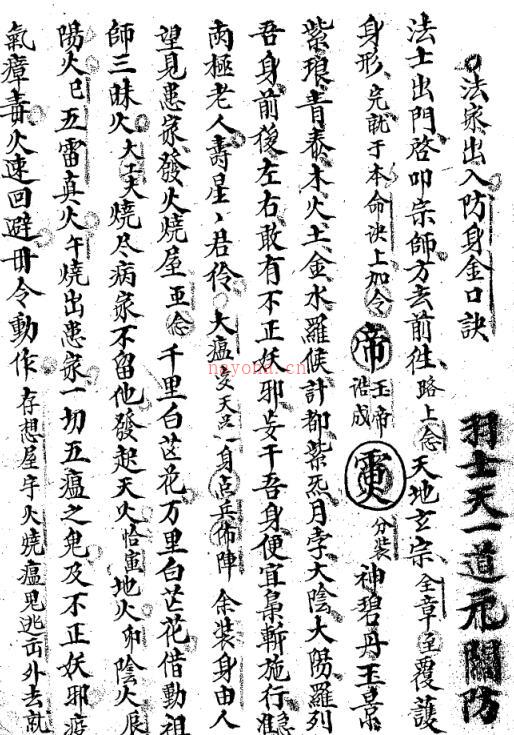 法家出入防身金口訣
羽士天一道元關防
法士出門啓叩宗師方去前往路上念天地玄宗全章至覆護
身形完就于本命訣上加令帝玉帝誥成靈分裝神碧丹玉素
紫琅青泰木火土金水羅候計都紫炁月孛太陰太陽羅列
吾身前後左右敢有不正妖邪妄干吾身便宜梟斬施行準
南極老人壽星君伶大瘟变天身点兵佈陣余裝身由人
望見患家發火燒屋亚念千里白芒花万里白芒花借動祖
師三昧火大工天燒尽病家不留他發起天火恰寅地火卯陰火辰
陽火巳五雷真火午燒出患家一切五瘟之鬼及不正妖邪疫
氣瘴毒火速回避毋令動作存想屋宇火燒瘟鬼逃出外去就
nayona.cn